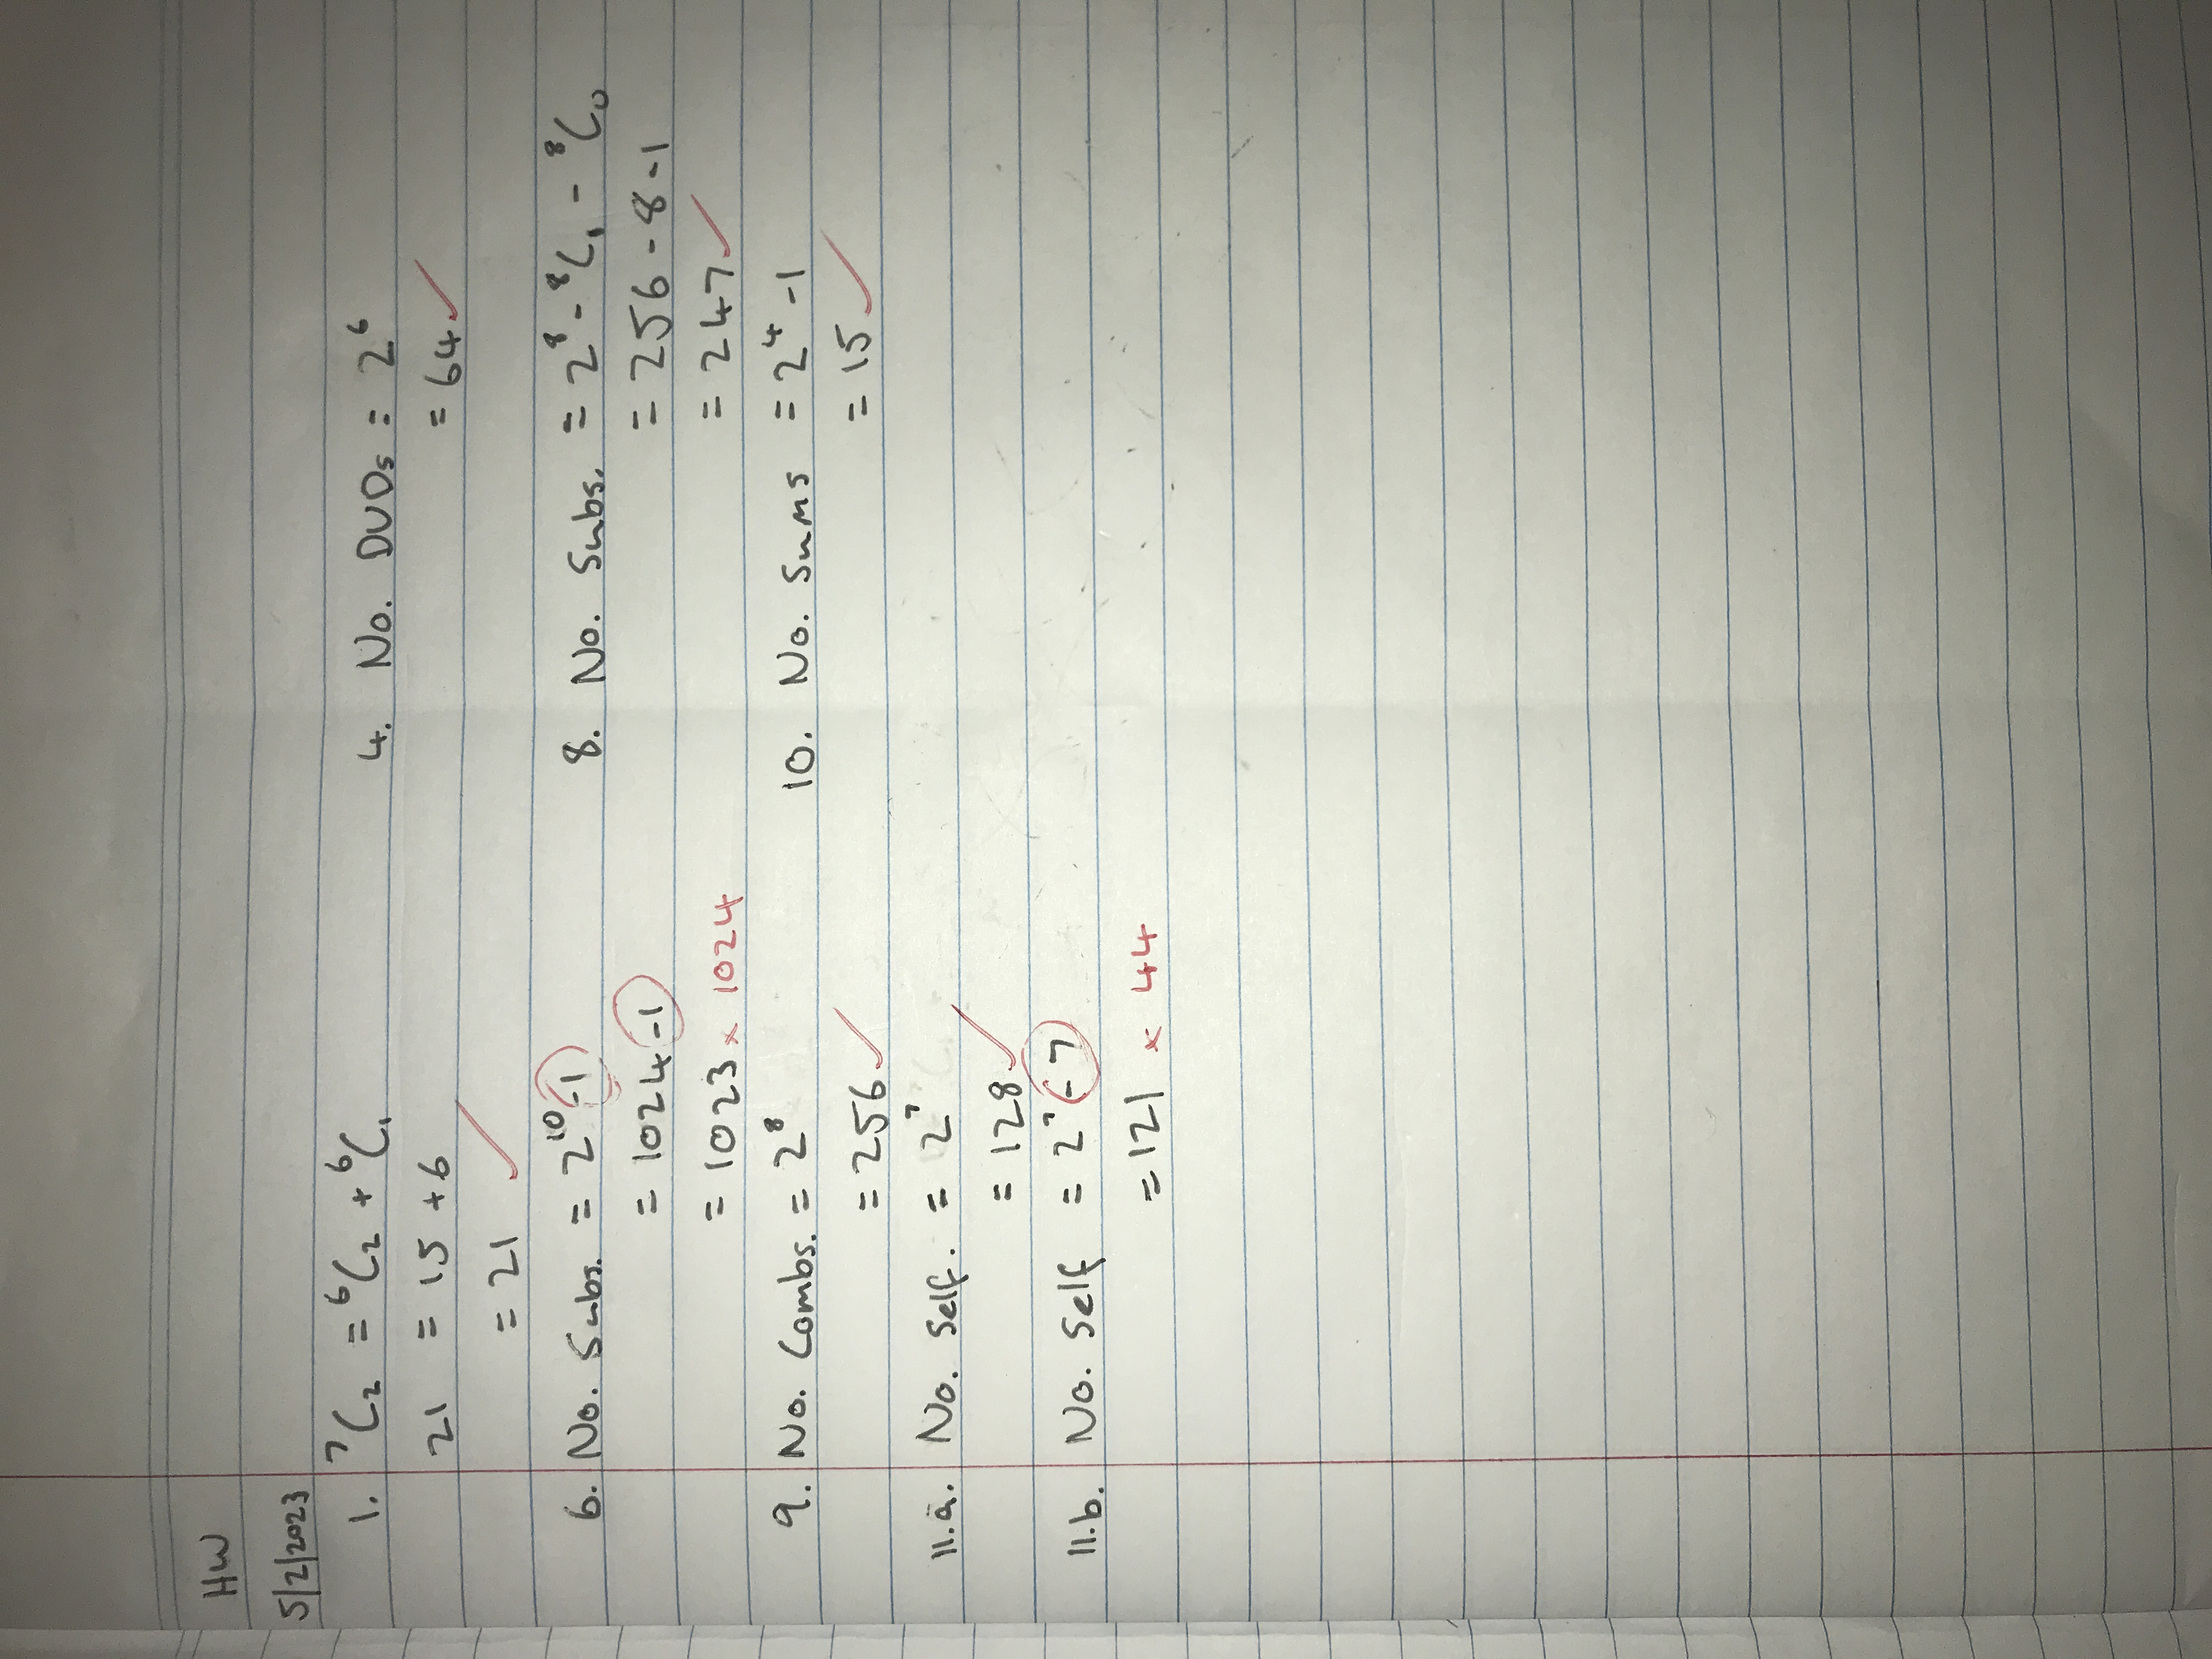 HW
5/2/2023
1. ⁷C₂ = ⁶C₂ + ⁶C₁
21 = 15 + 6
= 21 ✓
4. No. DVDs = 2⁶
= 64 ✓
6. No. Subs. = 2¹⁰ - 1
= 1024 - 1
= 1023 × 1024
8. No. Subs. = 2⁸ - ⁸C₁ - ⁸C₀
= 256 - 8 - 1
= 247 ✓
9. No. Combs. = 2⁸
= 256 ✓
10. No. Sums = 2⁴ - 1
= 15 ✓
11.a. No. Self. = 2⁷
= 128 ✓
11.b. No. Self = 2⁷ - 7
= 121 × 44